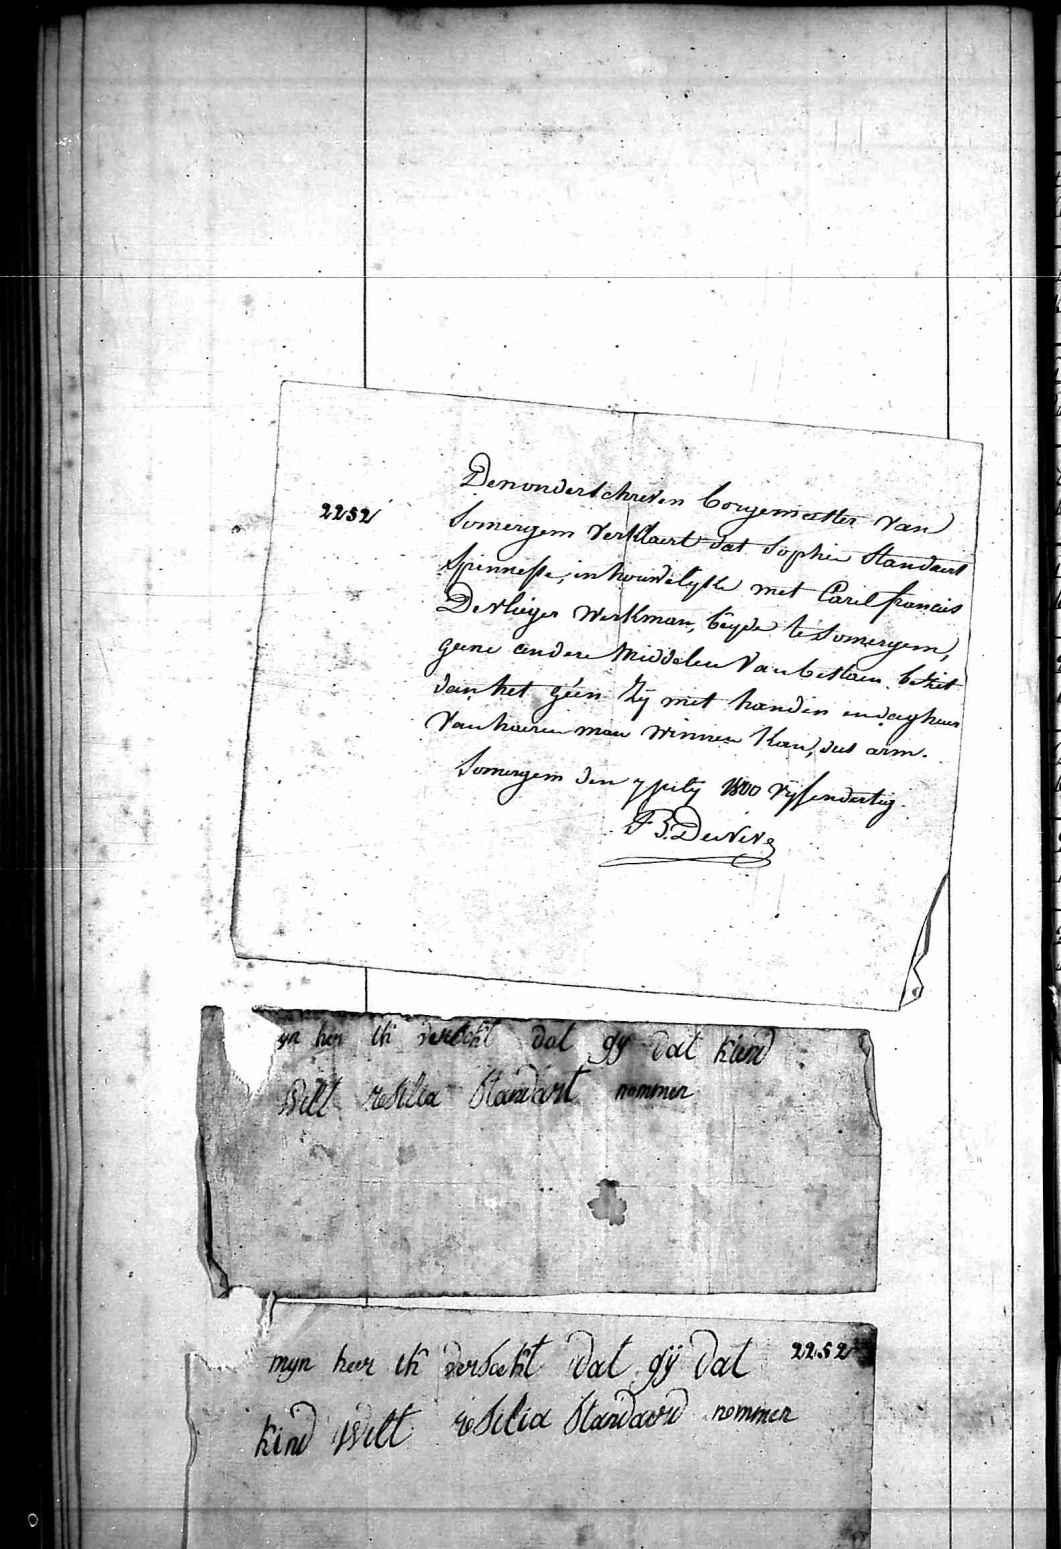 Denonderschreven Borgemeester van
2252
Somergem verklaert dat Sophie Standaert
Spinnesse, in houwelyk met Carel francis
De vlieger werkman, beyde te Somergem,
geene andere middelen van bestaen besit
dan het geen zy met handen en dagheur
van haeren man winnen kan, dus arm.
Somergem den 7 1800 vyfendertig
myn heer ik versoekt dat gy dat kind
wilt roselia Standart nommen
2252
myn heer ik versoekt dat gy dat
kind wilt roselia Standaerd nommen